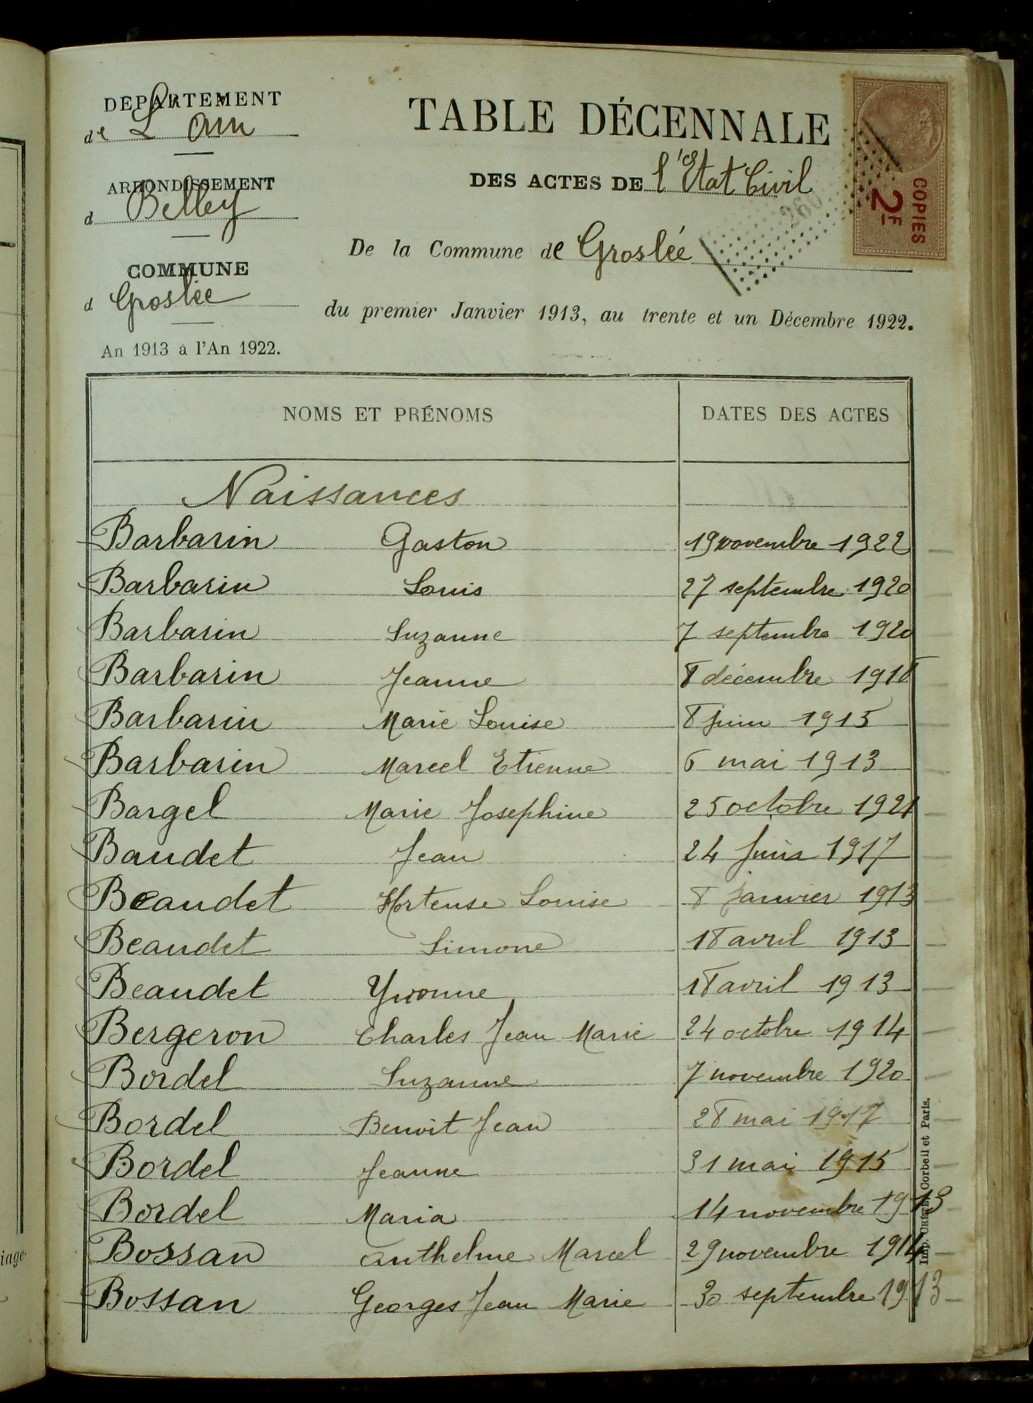 DEPARTEMENT
de L'Ain
ARRONDISSEMENT
d Belley
COMMUNE
d Groslée
An 1913 à l'An 1922.
TABLE DÉCENNALE
DES ACTES DE l'Etat Civil
De la Commune de Groslée
du premier Janvier 1913, au trente et un Décembre 1922.
COPIES
2F
260
NOMS ET PRÉNOMS DATES DES ACTES
Naissances
Barbarin Gaston 19 novembre 1922
Barbarin Louis 27 septembre 1920
Barbarin Suzanne 7 septembre 1920
Barbarin Jeanne 8 décembre
Barbarin Marie Louise 8 juin 1915
Barbarin Marcel Etienne 6 mai 1913
Bargel Marie Josephine 25 octobre 1921
Baudet Jean 24 Juin 1917
Beaudet Hortense Louise 8 janvier 1913
Beaudet Simone 18 avril 1913
Beaudet Yvonne 18 avril 1913
Bergeron Charles Jean Marie 24 octobre 1914
Bordel Suzanne 7 novembre 1920
Bordel Benoit Jean 28 mai 1917
Bordel Jeanne 31 mai 1915
Bordel Maria 14 novembre 1913
Bossan Anthelme Marcel 29 novembre 1914
Bossan Georges Jean Marie 30 septembre 1913
Corbeil et Paris.
iage